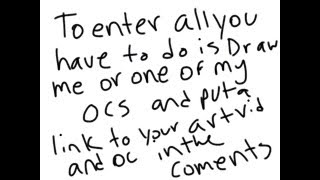 To enter all you
have to do is Draw
me or one of my
OCS and put a
link to your art vid
and OC in the
coments